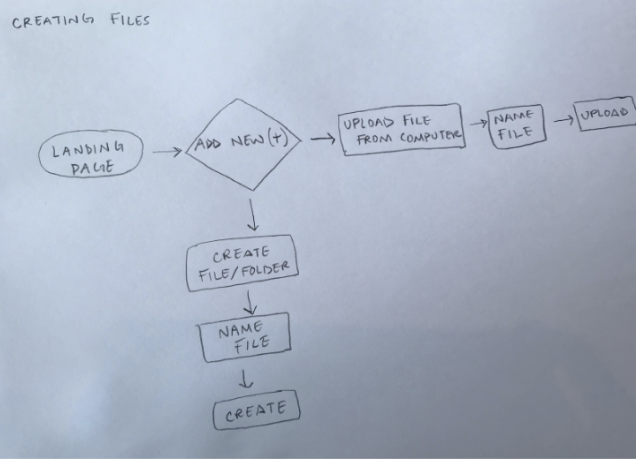 CREATING FILES
LANDING
PAGE
ADD NEW (+)
UPLOAD FILE
FROM COMPUTER
NAME
FILE
UPLOAD
CREATE
FILE/FOLDER
NAME
FILE
CREATE